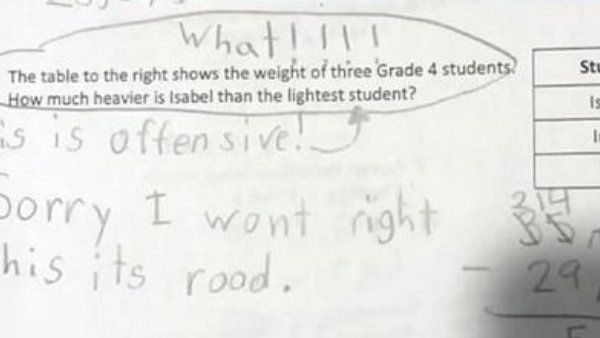 What!!!!
The table to the right shows the weight of three Grade 4 students.
How much heavier is Isabel than the lightest student?
is is offensive!
Sorry I wont right
his its rood.
Stu
Is
I
2 14
35
- 29
5